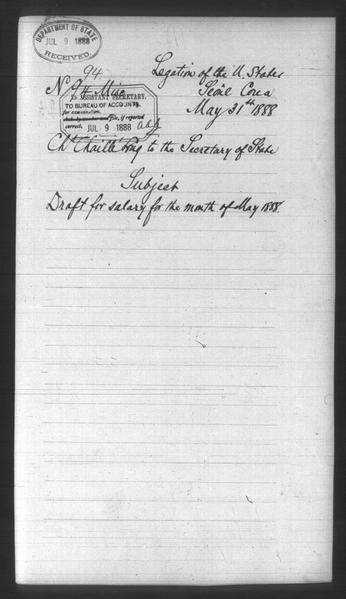 DEPARTMENT OF STATE
JUL 9 1888
RECEIVED.
94
Legation of the U. States
Seoul Corea
May 31st 1888
ASSISTANT SECRETARY.
TO BUREAU OF ACCOUNTS.
for examination.
file, if reported
correct. JUL 9 1888
Ch Chaillé Long to the Secretary of State
Subject
Draft for salary for the month of May 1888.